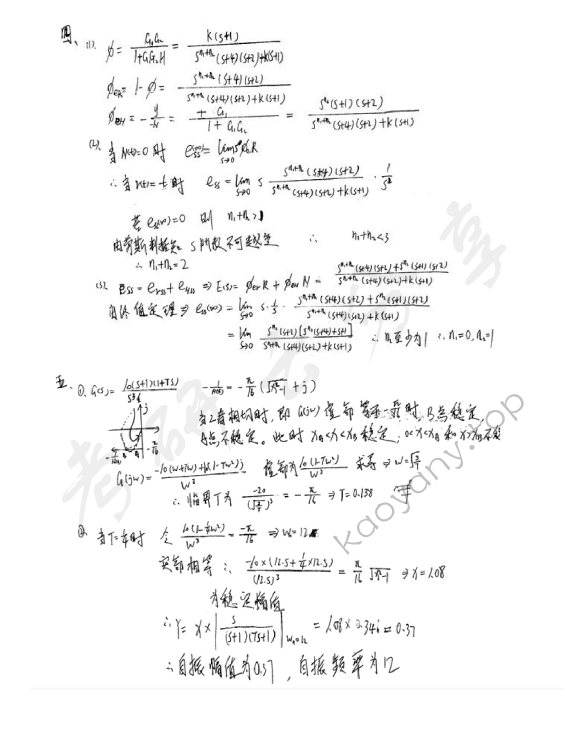 四、(1). φ = G₁G₂/(1+G₁G₂H) = K(s+1)/(s^{n₁+n₂}(s+4)(s+2)+K(s+1))
φ_{eR} = 1-φ = s^{n₁+n₂}(s+4)(s+2)/(s^{n₁+n₂}(s+4)(s+2)+K(s+1))
φ_{eN} = -y/N = ±G₁/(1+G₁G₂) = s^{n₂}(s+1)(s+2)/(s^{n₁+n₂}(s+4)(s+2)+K(s+1))
(2). 当N(t)=0时 e_{ss}(∞)=lim_{s→0} s φ_e R
∴当r(t)=t时 e_{ss}=lim_{s→0} s s^{n₁+n₂}(s+4)(s+2)/(s^{n₁+n₂}(s+4)(s+2)+K(s+1)) · 1/s²
若e_{ss}(∞)=0 则 n₁+n₂>1
由劳斯判据知: S阶数不可超过 ∴ n₁+n₂<3
∴ n₁+n₂=2
(3). E_{ss}=e_{rss}+e_{nss} ⇒ E(s)=φ_{er}R+φ_{en}N = s^{n₁+n₂}(s+4)(s+2)+s^{n₂}(s+1)(s+2)/(s^{n₁+n₂}(s+4)(s+2)+K(s+1))
由终值定理⇒ e_{ss}(∞)=lim_{s→0} s·1/s· s^{n₁+n₂}(s+4)(s+2)+s^{n₂}(s+1)(s+2)/(s^{n₁+n₂}(s+4)(s+2)+K(s+1))
= lim_{s→0} s^{n₂}(s+2)[s^{n₁}(s+4)+s+1]/(s^{n₁+n₂}(s+4)(s+2)+K(s+1)) ∴ n₂至少为1 ∴ n₁=0, n₂=1
五、①. G(s)=10(s+1)(1+Ts)/s³ -1/N(x) = -π/16(√(x²-1)+j)
当二者相切时,即G(jω)虚部等于一零时,B点稳定,
A点不稳定。此时 x_A<x<x_B稳定,
G(jω)= -10(ω+Tω)+10j(1-Tω²)/ω³ 虚部为10(1-Tω²)/ω³ 求导⇒ω=√(3/T)
∴临界T为 -20/(√(3/T))³ = -π/16 ⇒ T=0.138
② 当T=¼时 令 10(1-¼ω²)/ω³ = -π/16 ⇒ω=12
实部相等∴ -10×(12.5+¼×12.5)/(12.5)³ = π/16 √(x²-1) ⇒ x=1.08
为稳定幅值
∴Y= x×|s/((s+1)(Ts+1))|_{ω₀=12} = 1.08×0.346=0.37
∴自振幅值为0.37,自振频率为12
考研云分享
kaoyany.top